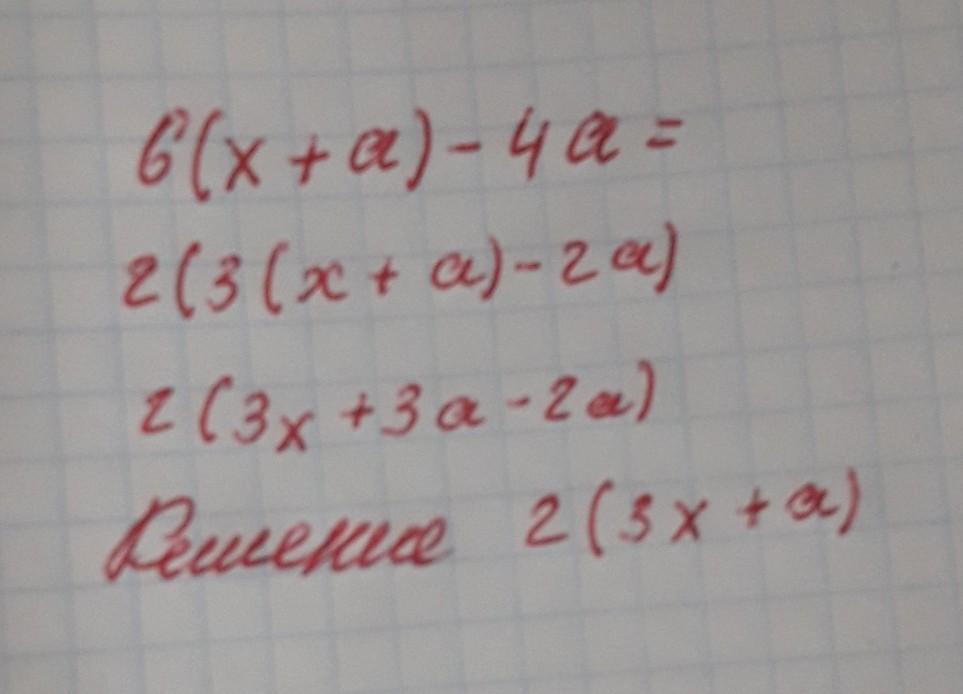 6(x+a)-4a=
2(3(x+a)-2a)
2(3x+3a-2a)
Решение 2(3x+a)